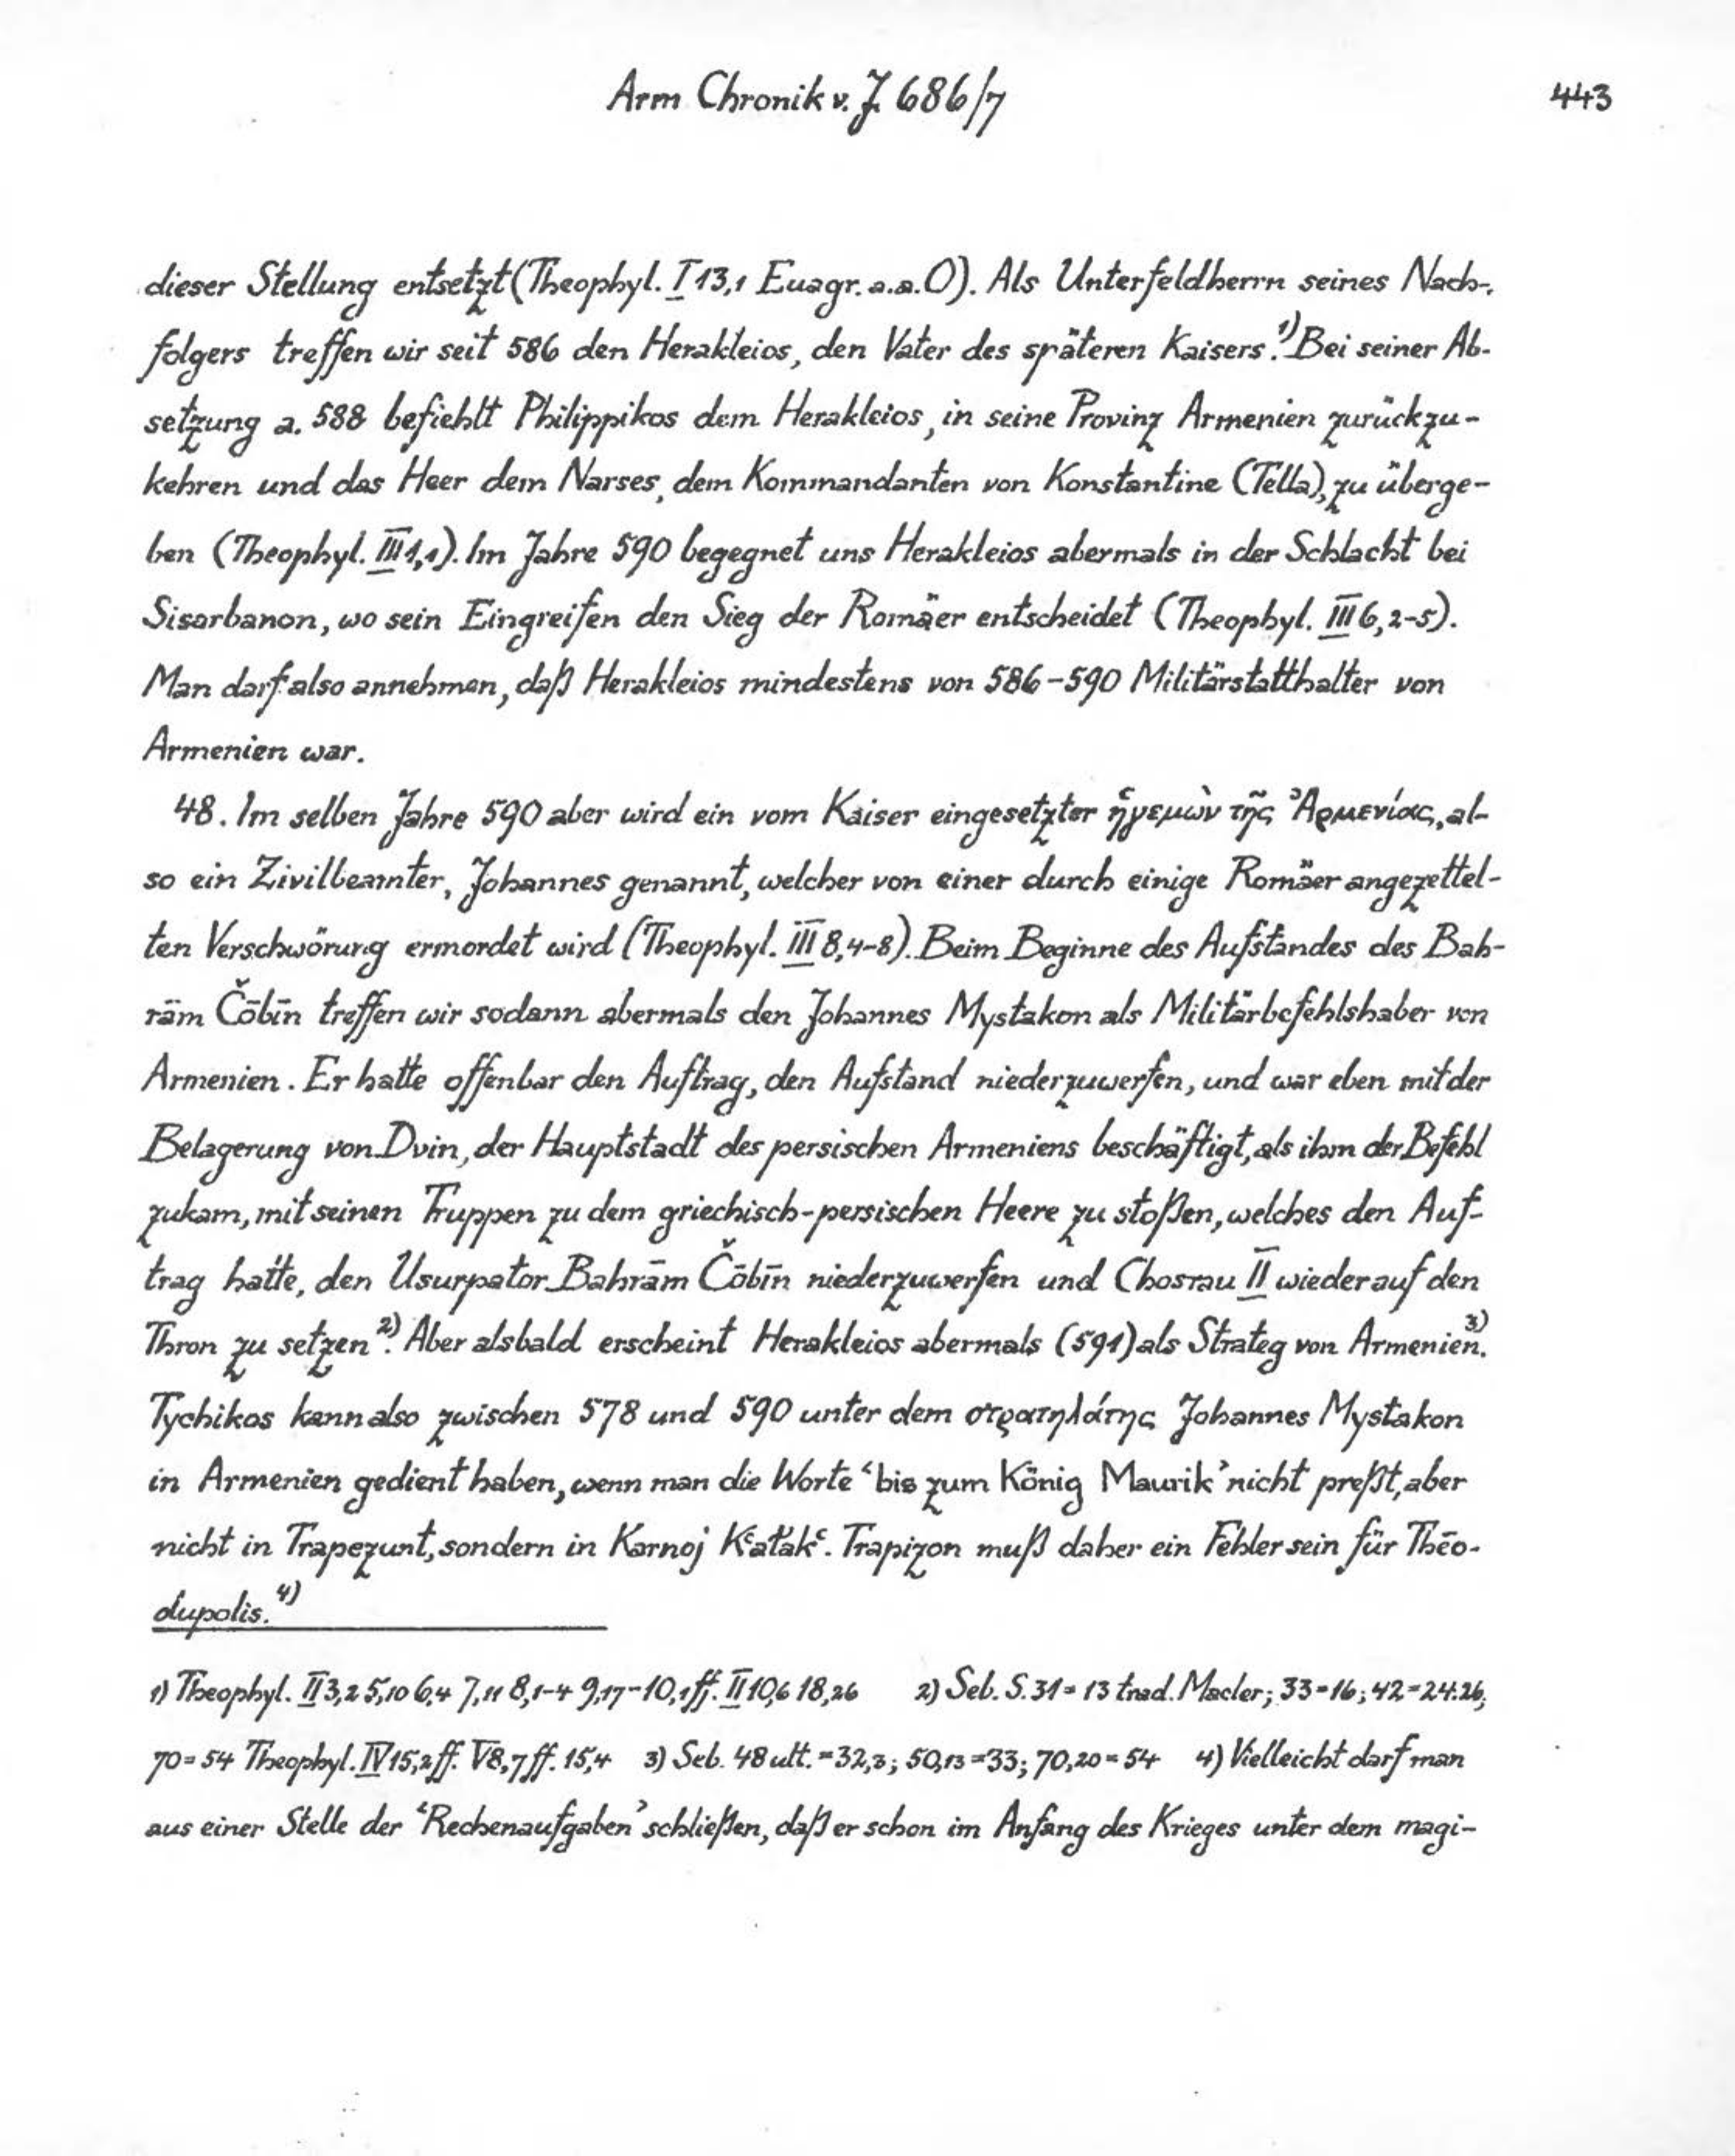 Arm Chronik v. J. 686/7
443
dieser Stellung entsetzt (Theophyl. I 13,1 Euagr. a.a.O). Als Unterfeldherrn seines Nach-
folgers treffen wir seit 586 den Herakleios, den Vater des späteren Kaisers.¹⁾ Bei seiner Ab-
setzung a. 588 befiehlt Philippikos dem Herakleios, in seine Provinz Armenien zurückzu-
kehren und das Heer dem Narses, dem Kommandanten von Konstantine (Tella), zu überge-
ben (Theophyl. III 1,1). Im Jahre 590 begegnet uns Herakleios abermals in der Schlacht bei
Sisarbanon, wo sein Eingreifen den Sieg der Romäer entscheidet (Theophyl. III 6, 2-5).
Man darf also annehmen, daß Herakleios mindestens von 586-590 Militärstatthalter von
Armenien war.
48. Im selben Jahre 590 aber wird ein vom Kaiser eingesetzter ἡγεμὼν τῆς Ἀρμενίας, al-
so ein Zivilbeamter, Johannes genannt, welcher von einer durch einige Romäer angezettel-
ten Verschwörung ermordet wird (Theophyl. III 8,4-8). Beim Beginne des Aufstandes des Bah-
rām Čōbīn treffen wir sodann abermals den Johannes Mystakon als Militärbefehlshaber von
Armenien. Er hatte offenbar den Auftrag, den Aufstand niederzuwerfen, und war eben mit der
Belagerung von Dvin, der Hauptstadt des persischen Armeniens beschäftigt, als ihm der Befehl
zukam, mit seinen Truppen zu dem griechisch-persischen Heere zu stoßen, welches den Auf-
trag hatte, den Usurpator Bahrām Čōbīn niederzuwerfen und Chosrau II wieder auf den
Thron zu setzen²⁾. Aber alsbald erscheint Herakleios abermals (591) als Strateg von Armenien.³⁾
Tychikos kann also zwischen 578 und 590 unter dem στρατηλάτης Johannes Mystakon
in Armenien gedient haben, wenn man die Worte ‘bis zum König Maurik’ nicht preßt, aber
nicht in Trapezunt, sondern in Karnoj Kʿałakʿ. Trapizon muß daher ein Fehler sein für Thēo-
dupolis.⁴⁾
1) Theophyl. II 3,2 5,10 6,4 7,11 8,1-4 9,17-10,1 ff. II 10,6 18,26 2) Seb. S. 31 = 13 trad. Macler; 33=16; 42=24.26;
70=54 Theophyl. IV 15,2 ff. V 8,7 ff. 15,4 3) Seb. 48 ult. =32,3; 50,13=33; 70,20=54 4) Vielleicht darf man
aus einer Stelle der ‘Rechenaufgaben’ schließen, daß er schon im Anfang des Krieges unter dem magi-